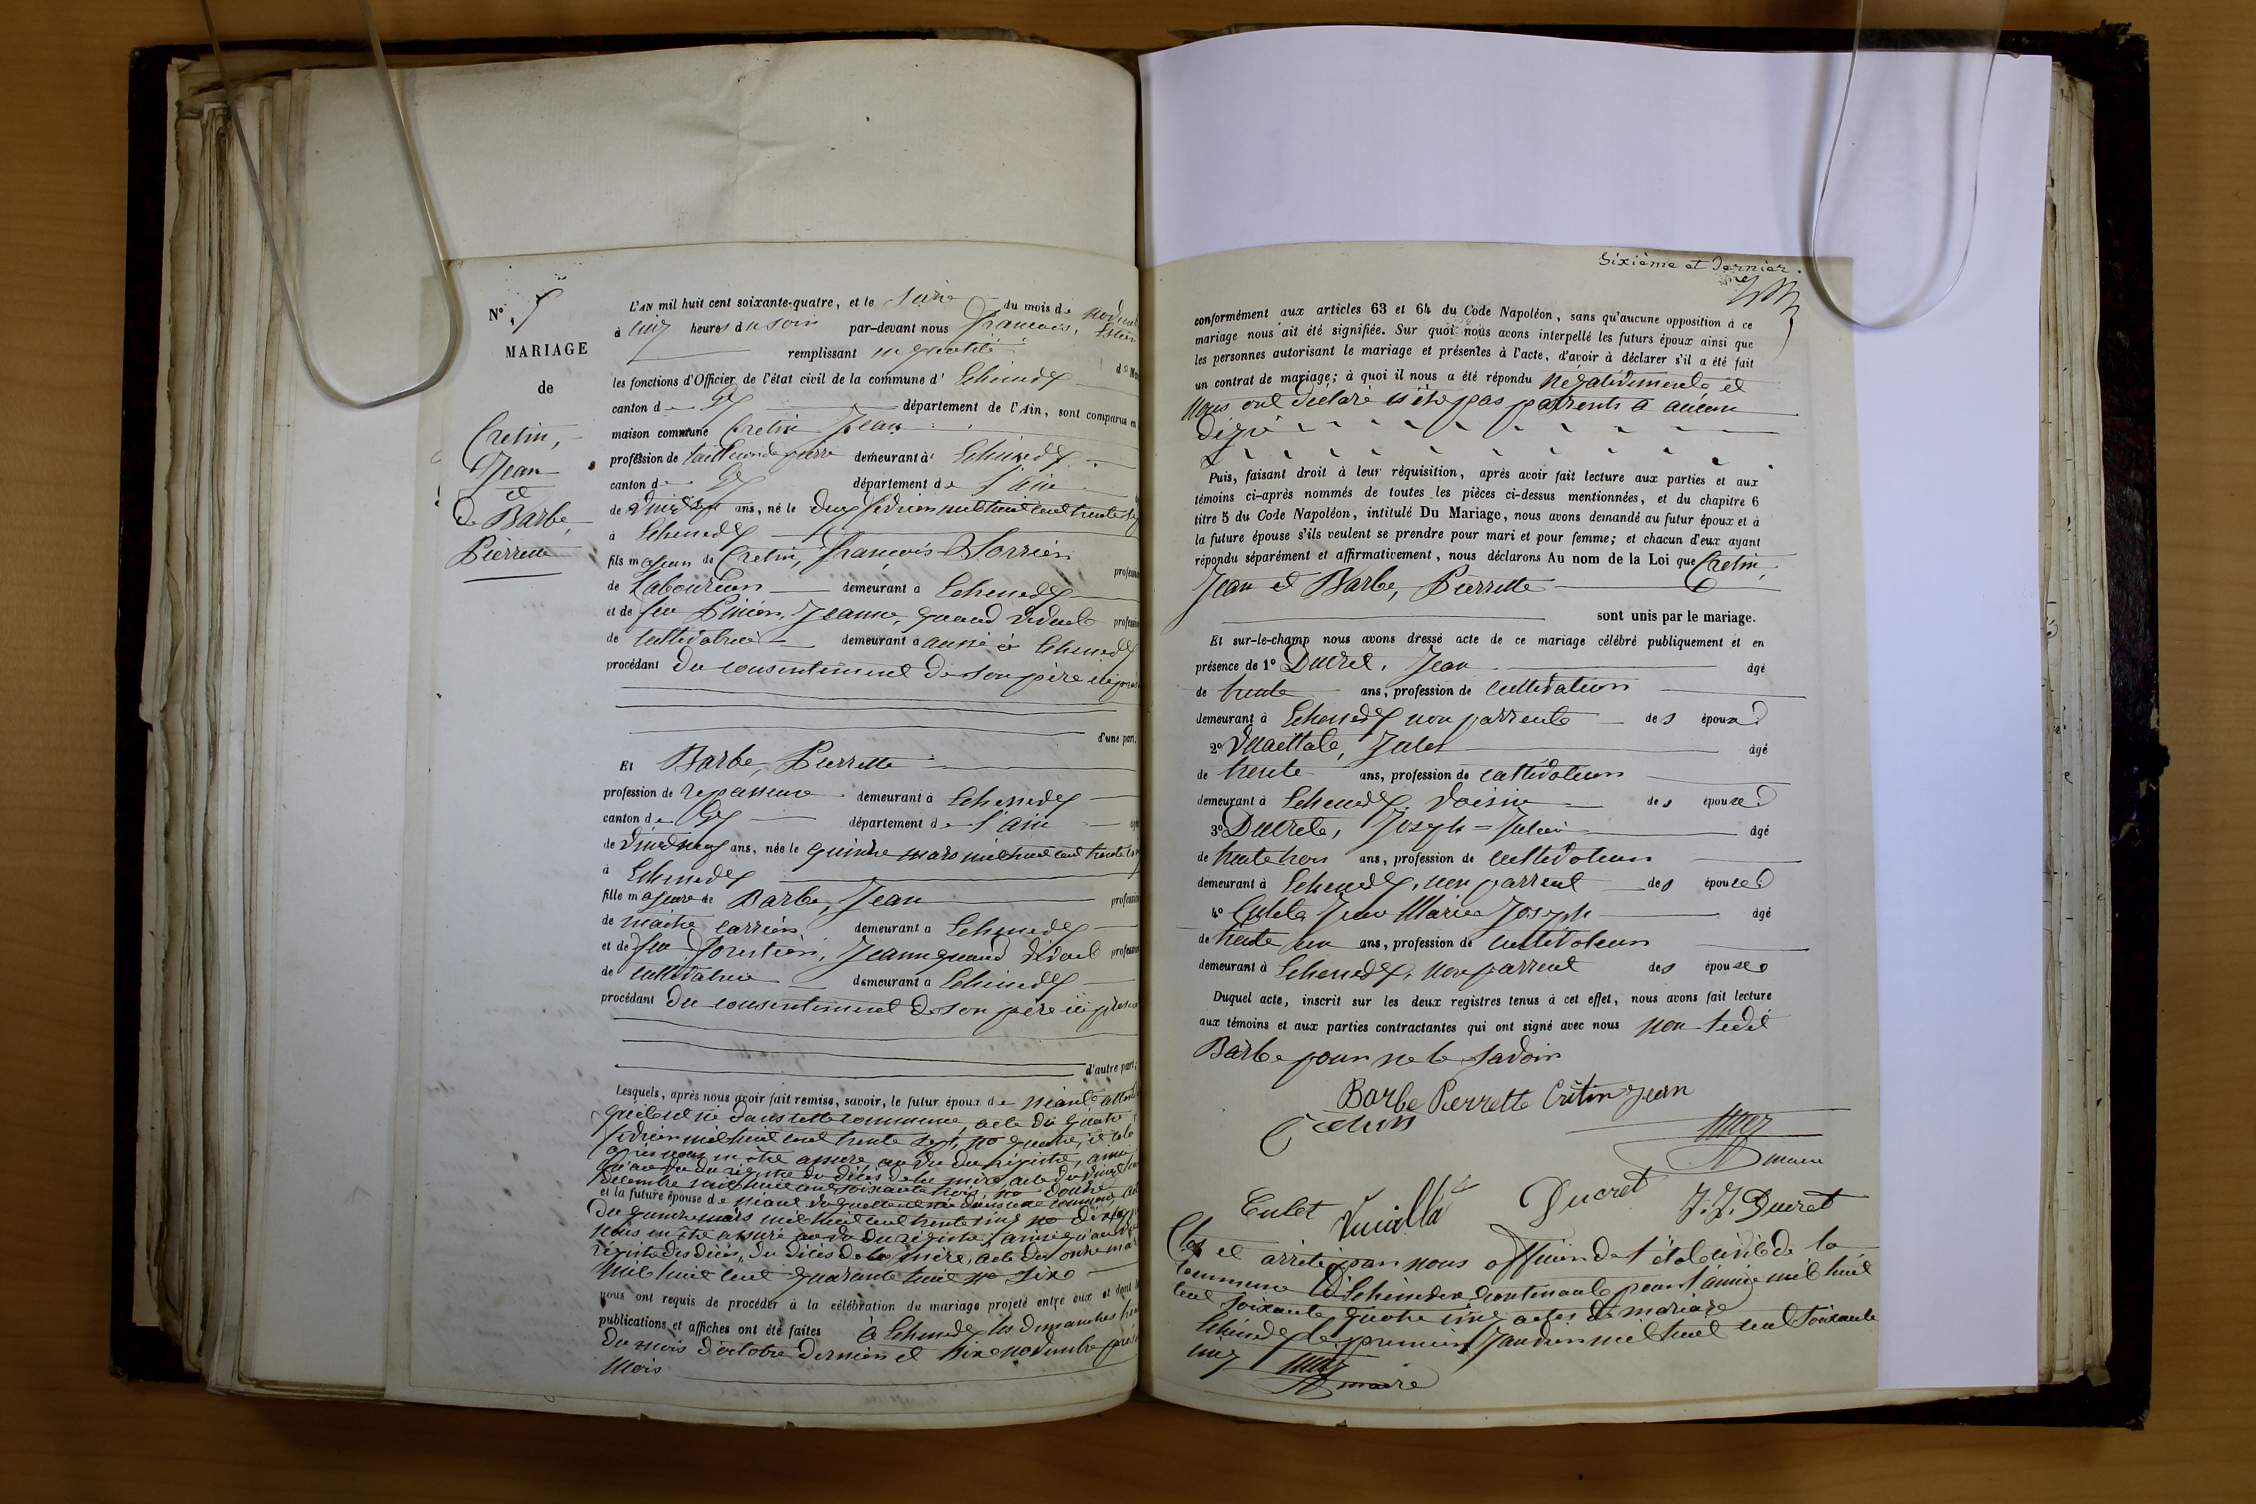 N° 5
MARIAGE
de
Cretin,
Jean
et
de Barbe,
Pierrette
L'AN mil huit cent soixante-quatre, et le seize du mois de
à cinq heures du soir par-devant nous François,
remplissant en qualité
les fonctions d'Officier de l'état civil de la commune d' Echenevex
canton de Gex département de l'Ain, sont comparus en
maison commune Cretin Jean
profession de tailleur de pierre demeurant à Echenevex
canton de Gex département de l'ain
de vingt sept ans, né le deux fevrier mil huit cent trente
à Echenevex
fils majeur de Cretin, François
de Laboureur demeurant à Echenevex
et de feu Jeanne, quand vivait
de cultivatrice demeurant à aussi à Echenevex
procédant du consentement de son père ici
d'une part;
Et Barbe, Pierrette
profession de repasseuse demeurant à Echenevex
canton de Gex département de l'ain
de vingt neuf ans, née le quinze mars mil huit cent trente
à Echenevex
fille majeure de Barbe, Jean
de maitre carrier demeurant à Echenevex
et de feu Forestier, Jeanne quand vivait
de cultivatrice demeurant à Echenevex
procédant du consentement de son père ici
d'autre part;
Lesquels, après nous avoir fait remise, savoir, le futur époux de
qu'il est né dans cette commune, acte du quatre
fevrier mil huit cent trente sept, n° quatre,
assuré au vu du registre,
qu'au vu du registre du décès de la mère, acte du
décembre mil huit cent soixante trois, n° douze
et la future épouse de
du quinze mars mil huit cent trente cinq n°
nous être assuré au vu du registre, ainsi qu'au
registre des décès, du décès de la mère, acte du onze
mil huit cent quarante huit n° sixe
nous ont requis de procéder à la célébration du mariage projeté entre eux et dont
publications et affiches ont été faites à Echenevex les dimanches
du mois d'octobre dernier et six novembre
mois
Sixième et Dernier.
conformément aux articles 63 et 64 du Code Napoléon, sans qu'aucune opposition à ce
mariage nous ait été signifiée. Sur quoi nous avons interpellé les futurs époux ainsi que
les personnes autorisant le mariage et présentes à l'acte, d'avoir à déclarer s'il a été fait
un contrat de mariage; à quoi il nous a été répondu négativement et
nous ont déclaré n'être pas parrents à aucun
degré
Puis, faisant droit à leur réquisition, après avoir fait lecture aux parties et aux
témoins ci-après nommés de toutes les pièces ci-dessus mentionnées, et du chapitre 6
titre 5 du Code Napoléon, intitulé Du Mariage, nous avons demandé au futur époux et à
la future épouse s'ils veulent se prendre pour mari et pour femme; et chacun d'eux ayant
répondu séparément et affirmativement, nous déclarons Au nom de la Loi que Cretin,
Jean et Barbe, Pierrette
sont unis par le mariage.
Et sur-le-champ nous avons dressé acte de ce mariage célébré publiquement et en
présence de 1° Ducret, Jean âgé
de trente ans, profession de cultivateur
demeurant à Echenevex non parrent des époux
2° Jules âgé
de trente ans, profession de cultivateur
demeurant à Echenevex, voisin des époux
3° Ducret, Joseph=Julien âgé
de trente trois ans, profession de cultivateur
demeurant à Echenevex, non parrent des époux
4° Culet, Jean Marie Joseph âgé
de trente un ans, profession de cultivateur
demeurant à Echenevex, non parrent des époux
Duquel acte, inscrit sur les deux registres tenus à cet effet, nous avons fait lecture
aux témoins et aux parties contractantes qui ont signé avec nous non ledit
Barbe pour ne le savoir
Barbe Pierrette Crètin Jean
maire
Culet Ducret J. J. Ducret
Clos et arrêté par nous officier de l'état civil de la
commune d'Echenevex contenant pour l'année mil huit
cent soixante quatre cinq actes de mariage
Echenevex le premier Janvier mil huit cent soixante
cinq
maire